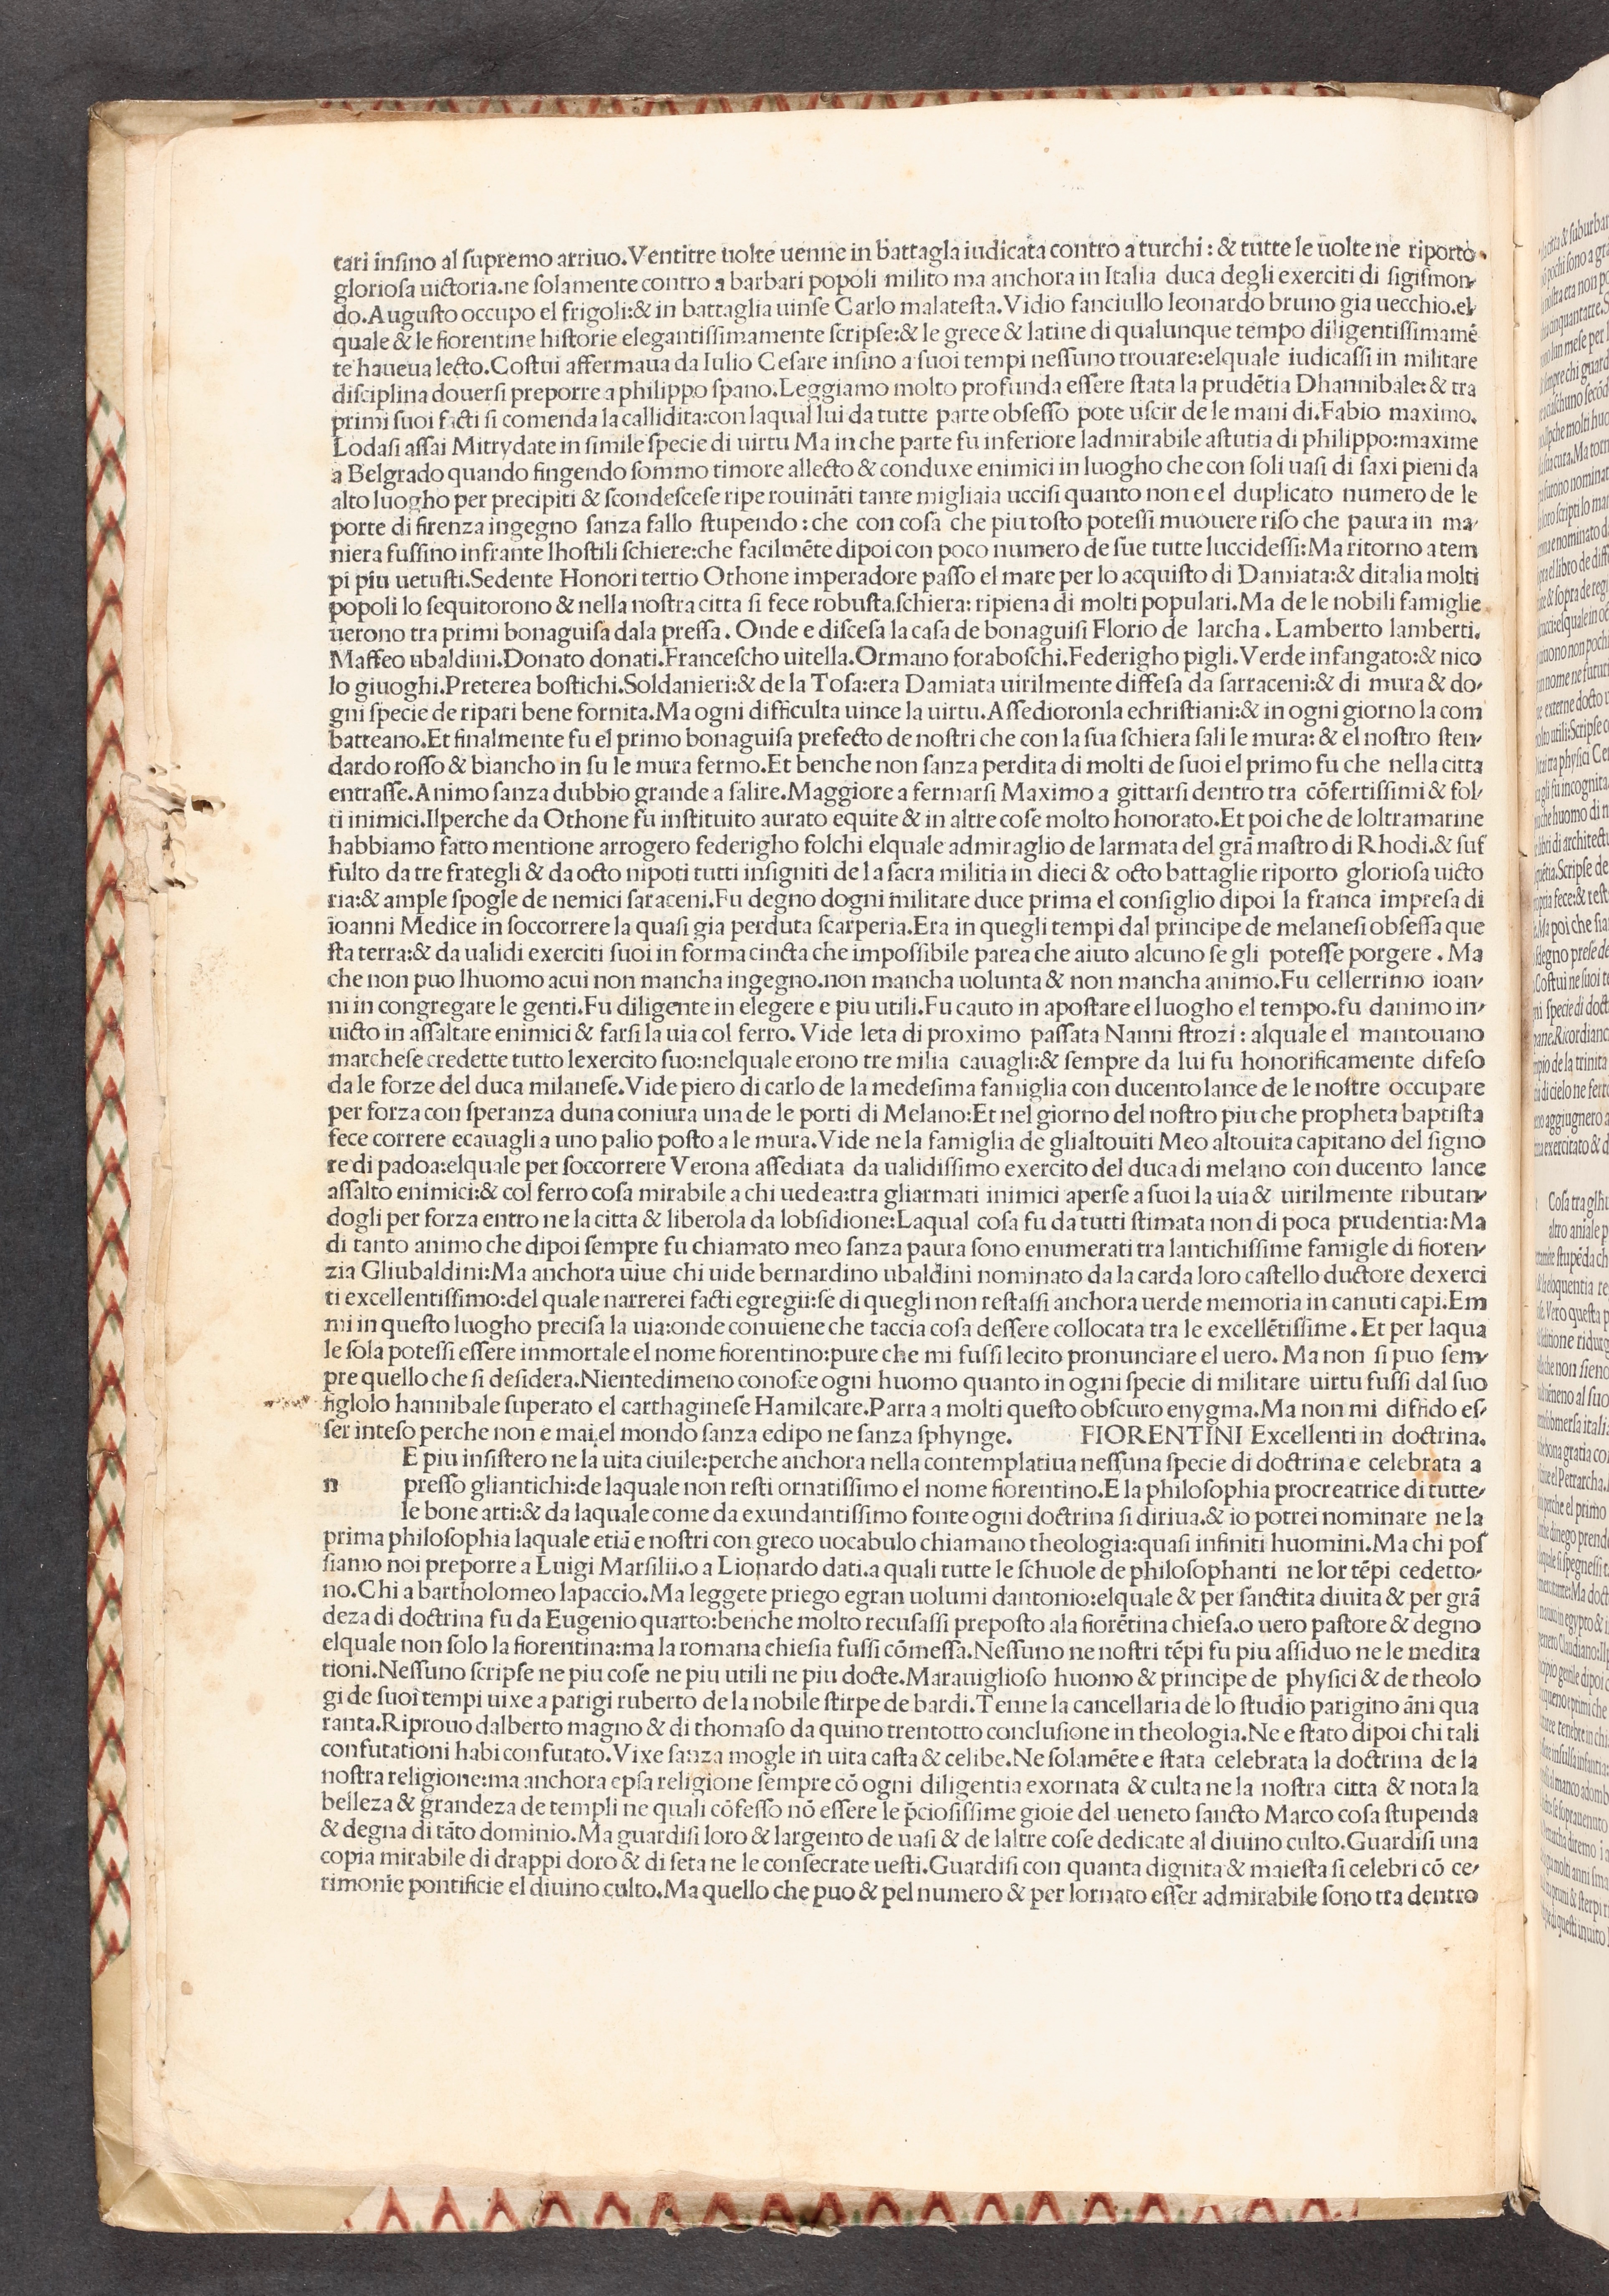 tari insino al supremo arriuo.Ventitre uolte uenne in battagla iudicata contro a turchi: & tutte le uolte ne riporto
gloriosa uictoria.ne solamente contro a barbari popoli milito ma anchora in Italia duca degli exerciti di sigismon-
do.Augusto occupo el frigoli:& in battaglia uinse Carlo malatesta.Vidio fanciullo leonardo bruno gia uecchio.el
quale & le fiorentine historie elegantissimamente scripse:& le grece & latine di qualunque tempo diligentissimamē
te haueua lecto.Costui affermaua da Iulio Cesare insino a suoi tempi nessuno trouare:elquale iudicassi in militare
disciplina douersi preporre a philippo spano.Leggiamo molto profunda essere stata la prudētia Dhannibale: & tra
primi suoi facti si comenda la callidita:con laqual lui da tutte parte obsesso pote uscir de le mani di.Fabio maximo.
Lodasi assai Mitrydate in simile specie di uirtu Ma in che parte fu inferiore ladmirabile astutia di philippo:maxime
a Belgrado quando fingendo sommo timore allecto & conduxe enimici in luogho che con soli uasi di saxi pieni da
alto luogho per precipiti & scondescese ripe rouināti tante migliaia uccisi quanto non e el duplicato numero de le
porte di firenza ingegno sanza fallo stupendo : che con cosa che piu tosto potessi muouere riso che paura in ma-
niera fussino infrante lhostili schiere:che facilmēte dipoi con poco numero de sue tutte luccidessi: Ma ritorno a tem
pi piu uetusti.Sedente Honori tertio Othone imperadore passo el mare per lo acquisto di Damiata:& ditalia molti
popoli lo sequitorono & nella nostra citta si fece robusta.schiera: ripiena di molti populari.Ma de le nobili famiglie
uerono tra primi bonaguisa dala pressa. Onde e discesa la casa de bonaguisi Florio de larcha. Lamberto lamberti.
Maffeo ubaldini.Donato donati.Francescho uitella.Ormano foraboschi.Federigho pigli.Verde infangato:& nico
lo giuoghi.Preterea bostichi.Soldanieri:& de la Tosa:era Damiata uirilmente diffesa da sarraceni:& di mura & do-
gni specie de ripari bene fornita.Ma ogni difficulta uince la uirtu.Assedioronla echristiani:& in ogni giorno la com
batteano.Et finalmente fu el primo bonaguisa prefecto de nostri che con la sua schiera sali le mura: & el nostro sten-
dardo rosso & biancho in su le mura fermo.Et benche non sanza perdita di molti de suoi el primo fu che nella citta
entrasse.Animo sanza dubbio grande a salire.Maggiore a fermarsi Maximo a gittarsi dentro tra cōfertissimi & fol-
ti inimici.Ilperche da Othone fu instituito aurato equite & in altre cose molto honorato.Et poi che de loltramarine
habbiamo fatto mentione arrogero federigho folchi elquale admiraglio de larmata del grā mastro di Rhodi.& suf
fulto da tre frategli & da octo nipoti tutti insigniti de la sacra militia in dieci & octo battaglie riporto gloriosa uicto
ria:& ample spogle de nemici saraceni.Fu degno dogni militare duce prima el consiglio dipoi la franca impresa di
ioanni Medice in soccorrere la quasi gia perduta scarperia.Era in quegli tempi dal principe de melanesi obsessa que
sta terra:& da ualidi exerciti suoi in forma cincta che impossibile parea che aiuto alcuno se gli potesse porgere . Ma
che non puo lhuomo acui non mancha ingegno.non mancha uolunta & non mancha animo.Fu cellerrimo ioan-
ni in congregare le genti.Fu diligente in elegere e piu utili.Fu cauto in apostare el luogho el tempo.fu danimo in-
uicto in assaltare enimici & farsi la uia col ferro. Vide leta di proximo passata Nanni strozi : alquale el mantouano
marchese credette tutto lexercito suo:nelquale erono tre milia cauagli:& sempre da lui fu honorificamente difeso
da le forze del duca milanese.Vide piero di carlo de la medesima famiglia con ducento lance de le nostre occupare
per forza con speranza duna coniura una de le porti di Melano:Et nel giorno del nostro piu che propheta baptista
fece correre ecauagli a uno palio posto a le mura.Vide ne la famiglia de glialtouiti Meo altouita capitano del signo
re di padoa:elquale per soccorrere Verona assediata da ualidissimo exercito del duca di melano con ducento lance
assalto enimici:& col ferro cosa mirabile a chi uedea:tra gliarmati inimici aperse a suoi la uia & uirilmente ributan-
dogli per forza entro ne la citta & liberola da lobsidione:Laqual cosa fu da tutti stimata non di poca prudentia: Ma
di tanto animo che dipoi sempre fu chiamato meo sanza paura sono enumerati tra lantichissime famigle di fioren-
zia Gliubaldini:Ma anchora uiue chi uide bernardino ubaldini nominato da la carda loro castello ductore dexerci
ti excellentissimo:del quale narrerei facti egregii:se di quegli non restassi anchora uerde memoria in canuti capi.Em
mi in questo luogho precisa la uia:onde conuiene che taccia cosa dessere collocata tra le excellētissime . Et per laqua
le sola potessi essere immortale el nome fiorentino:pure che mi fussi lecito pronunciare el uero. Ma non si puo sem-
pre quello che si desidera.Nientedimeno conosce ogni huomo quanto in ogni specie di militare uirtu fussi dal suo
figlolo hannibale superato el carthaginese Hamilcare.Parra a molti questo obscuro enygma.Ma non mi diffido es-
ser inteso perche non e mai.el mondo sanza edipo ne sanza sphynge. FIORENTINI Excellenti in doctrina.
E piu insistero ne la uita ciuile:perche anchora nella contemplatiua nessuna specie di doctrina e celebrata a
n presso gliantichi:de laquale non resti ornatissimo el nome fiorentino.E la philosophia procreatrice di tutte-
le bone arti:& da laquale come da exundantissimo fonte ogni doctrina si diriua.& io potrei nominare ne la
prima philosophia laquale etiā e nostri con greco uocabulo chiamano theologia:quasi infiniti huomini.Ma chi pos
siamo noi preporre a Luigi Marsilii.o a Lionardo dati.a quali tutte le schuole de philosophanti ne lor tēpi cedetto-
no.Chi a bartholomeo lapaccio.Ma leggete priego egran uolumi dantonio:elquale & per sanctita diuita & per grā
deza di doctrina fu da Eugenio quarto:benche molto recusassi preposto ala fiorētina chiesa.o uero pastore & degno
elquale non solo la fiorentina:ma la romana chiesia fussi cōmessa.Nessuno ne nostri tēpi fu piu assiduo ne le medita
tioni.Nessuno scripse ne piu cose ne piu utili ne piu docte.Marauiglioso huomo & principe de physici & de theolo
gi de suoi tempi uixe a parigi ruberto de la nobile stirpe de bardi.Tenne la cancellaria de lo studio parigino āni qua
ranta.Riprouo dalberto magno & di thomaso da quino trentotto conclusione in theologia.Ne e stato dipoi chi tali
confutationi habi confutato.Vixe sanza mogle in uita casta & celibe.Ne solamēte e stata celebrata la doctrina de la
nostra religione:ma anchora epsa religione sempre cō ogni diligentia exornata & culta ne la nostra citta & nota la
belleza & grandeza de templi ne quali cōfesso nō essere le p̄ciosissime gioie del ueneto sancto Marco cosa stupenda
& degna di tāto dominio.Ma guardisi loro & largento de uasi & de laltre cose dedicate al diuino culto.Guardisi una
copia mirabile di drappi doro & di seta ne le consecrate uesti.Guardisi con quanta dignita & maiesta si celebri cō ce-
rimonie pontificie el diuino culto.Ma quello che puo & pel numero & per lornato esser admirabile sono tra dentro